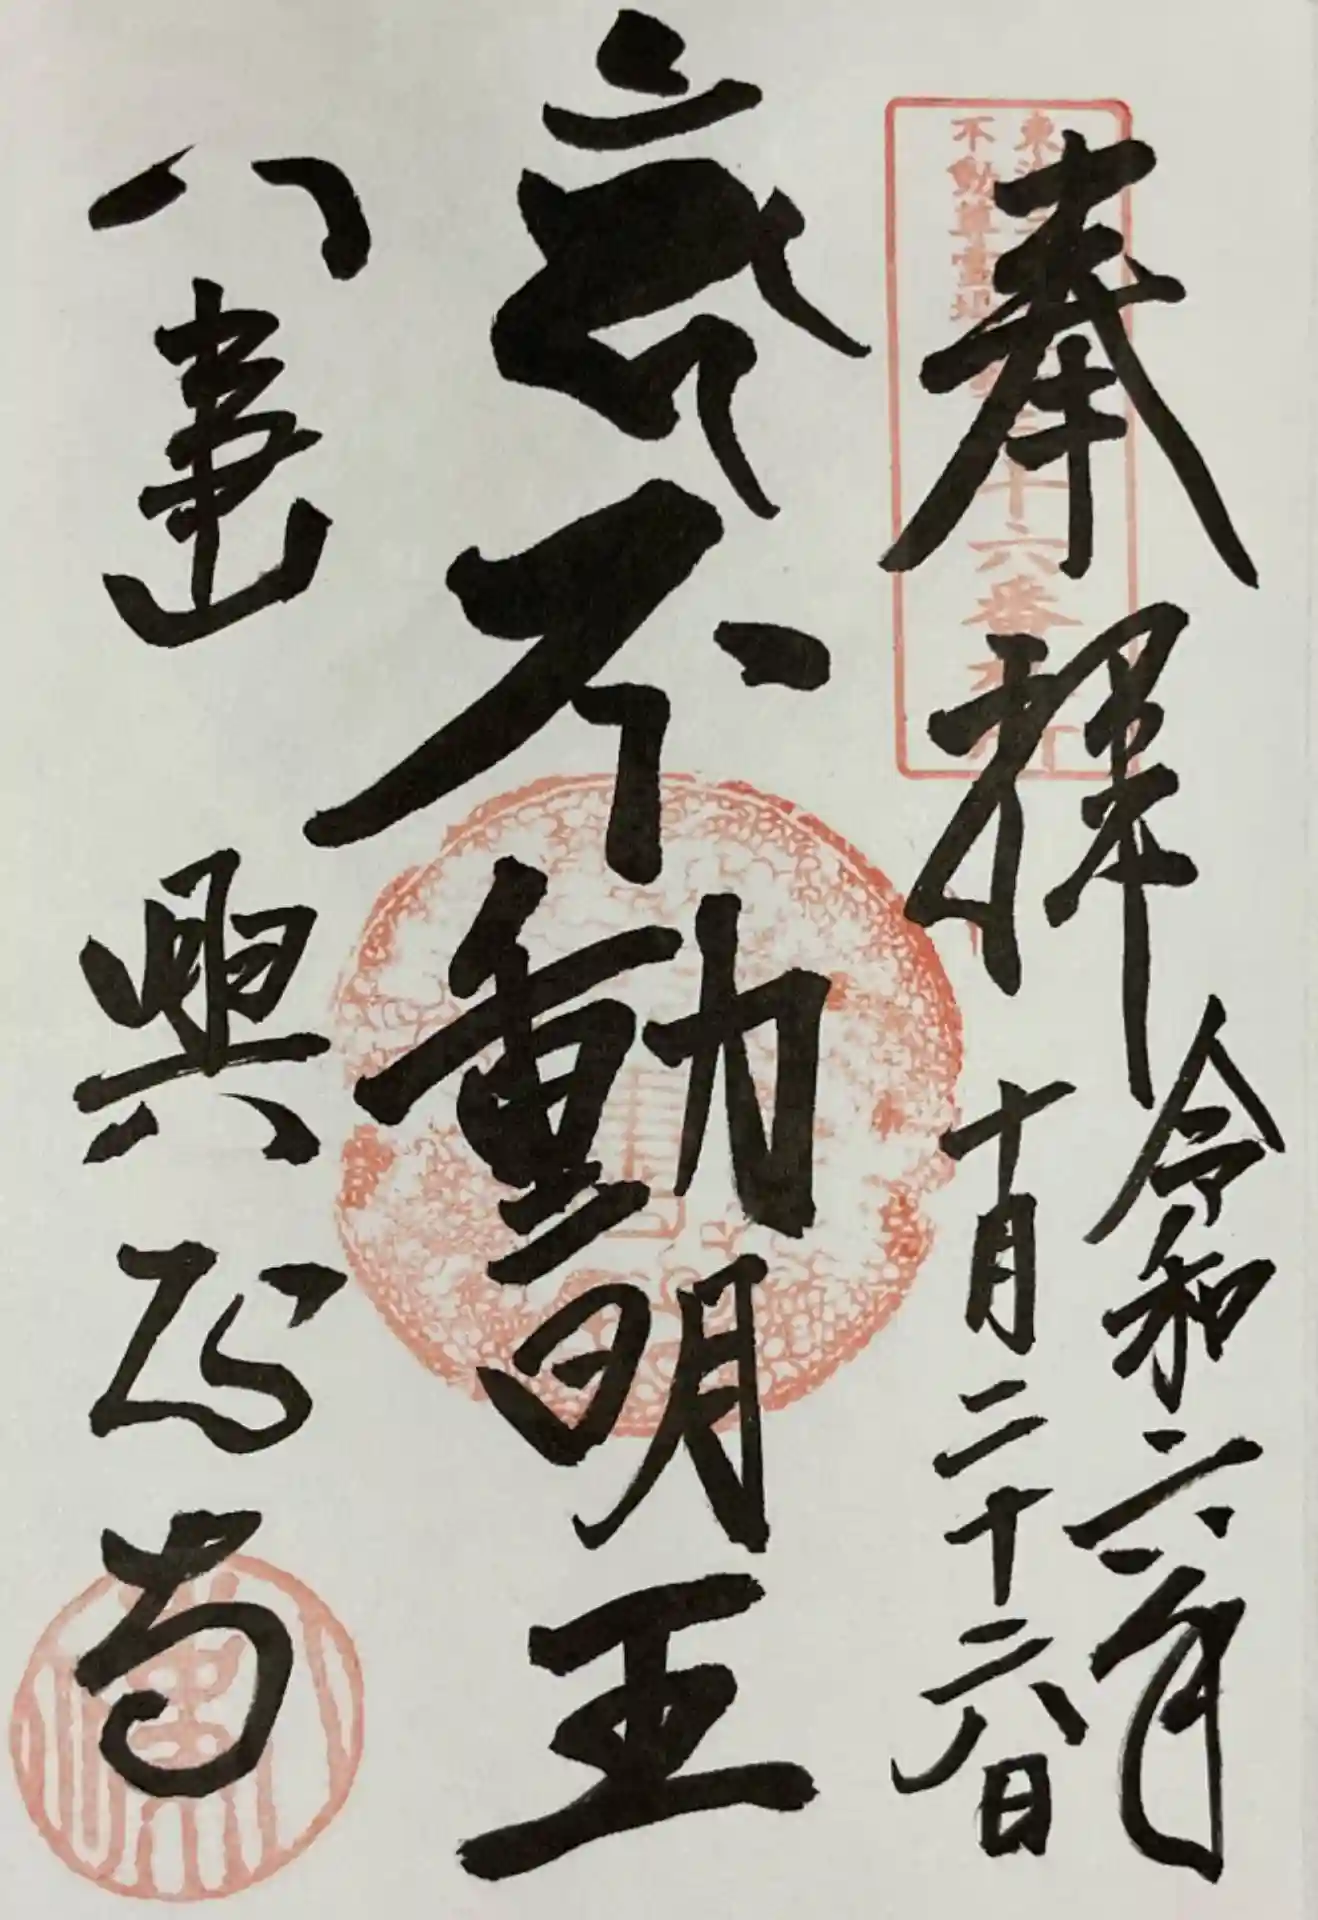 奉拝
令和六年
十月二十六日
不動尊霊場
十六番
不動明王
八事山
興正寺